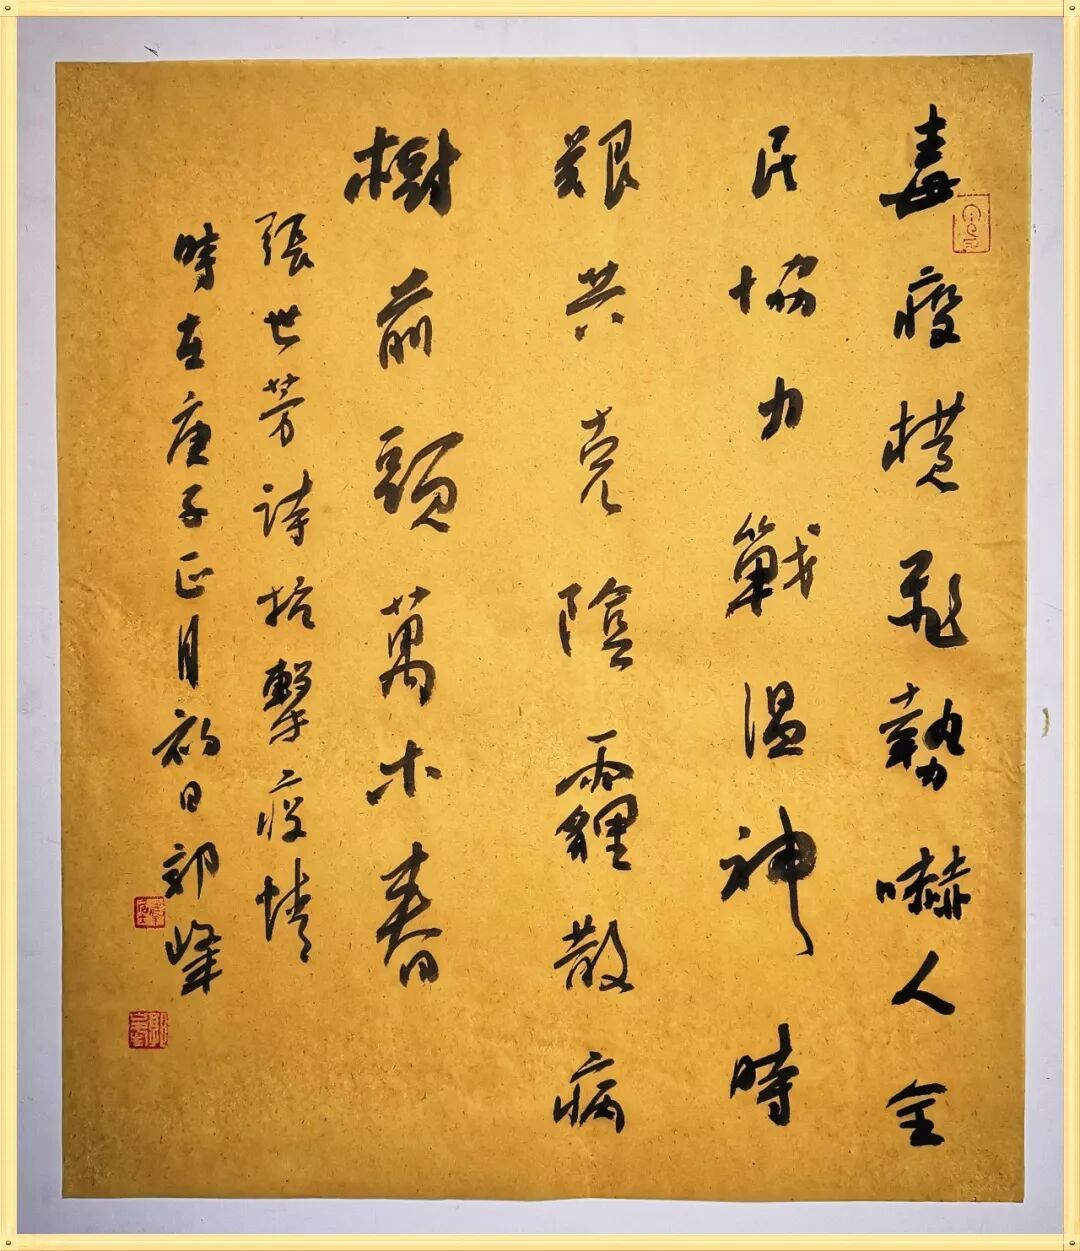 毒疫橫飛勢嚇人全
民協力戰溫神時
艱共克陰霾散病
樹前頭萬木春
張世芳詩抗擊疫情
時在庚子正月初日郭峰